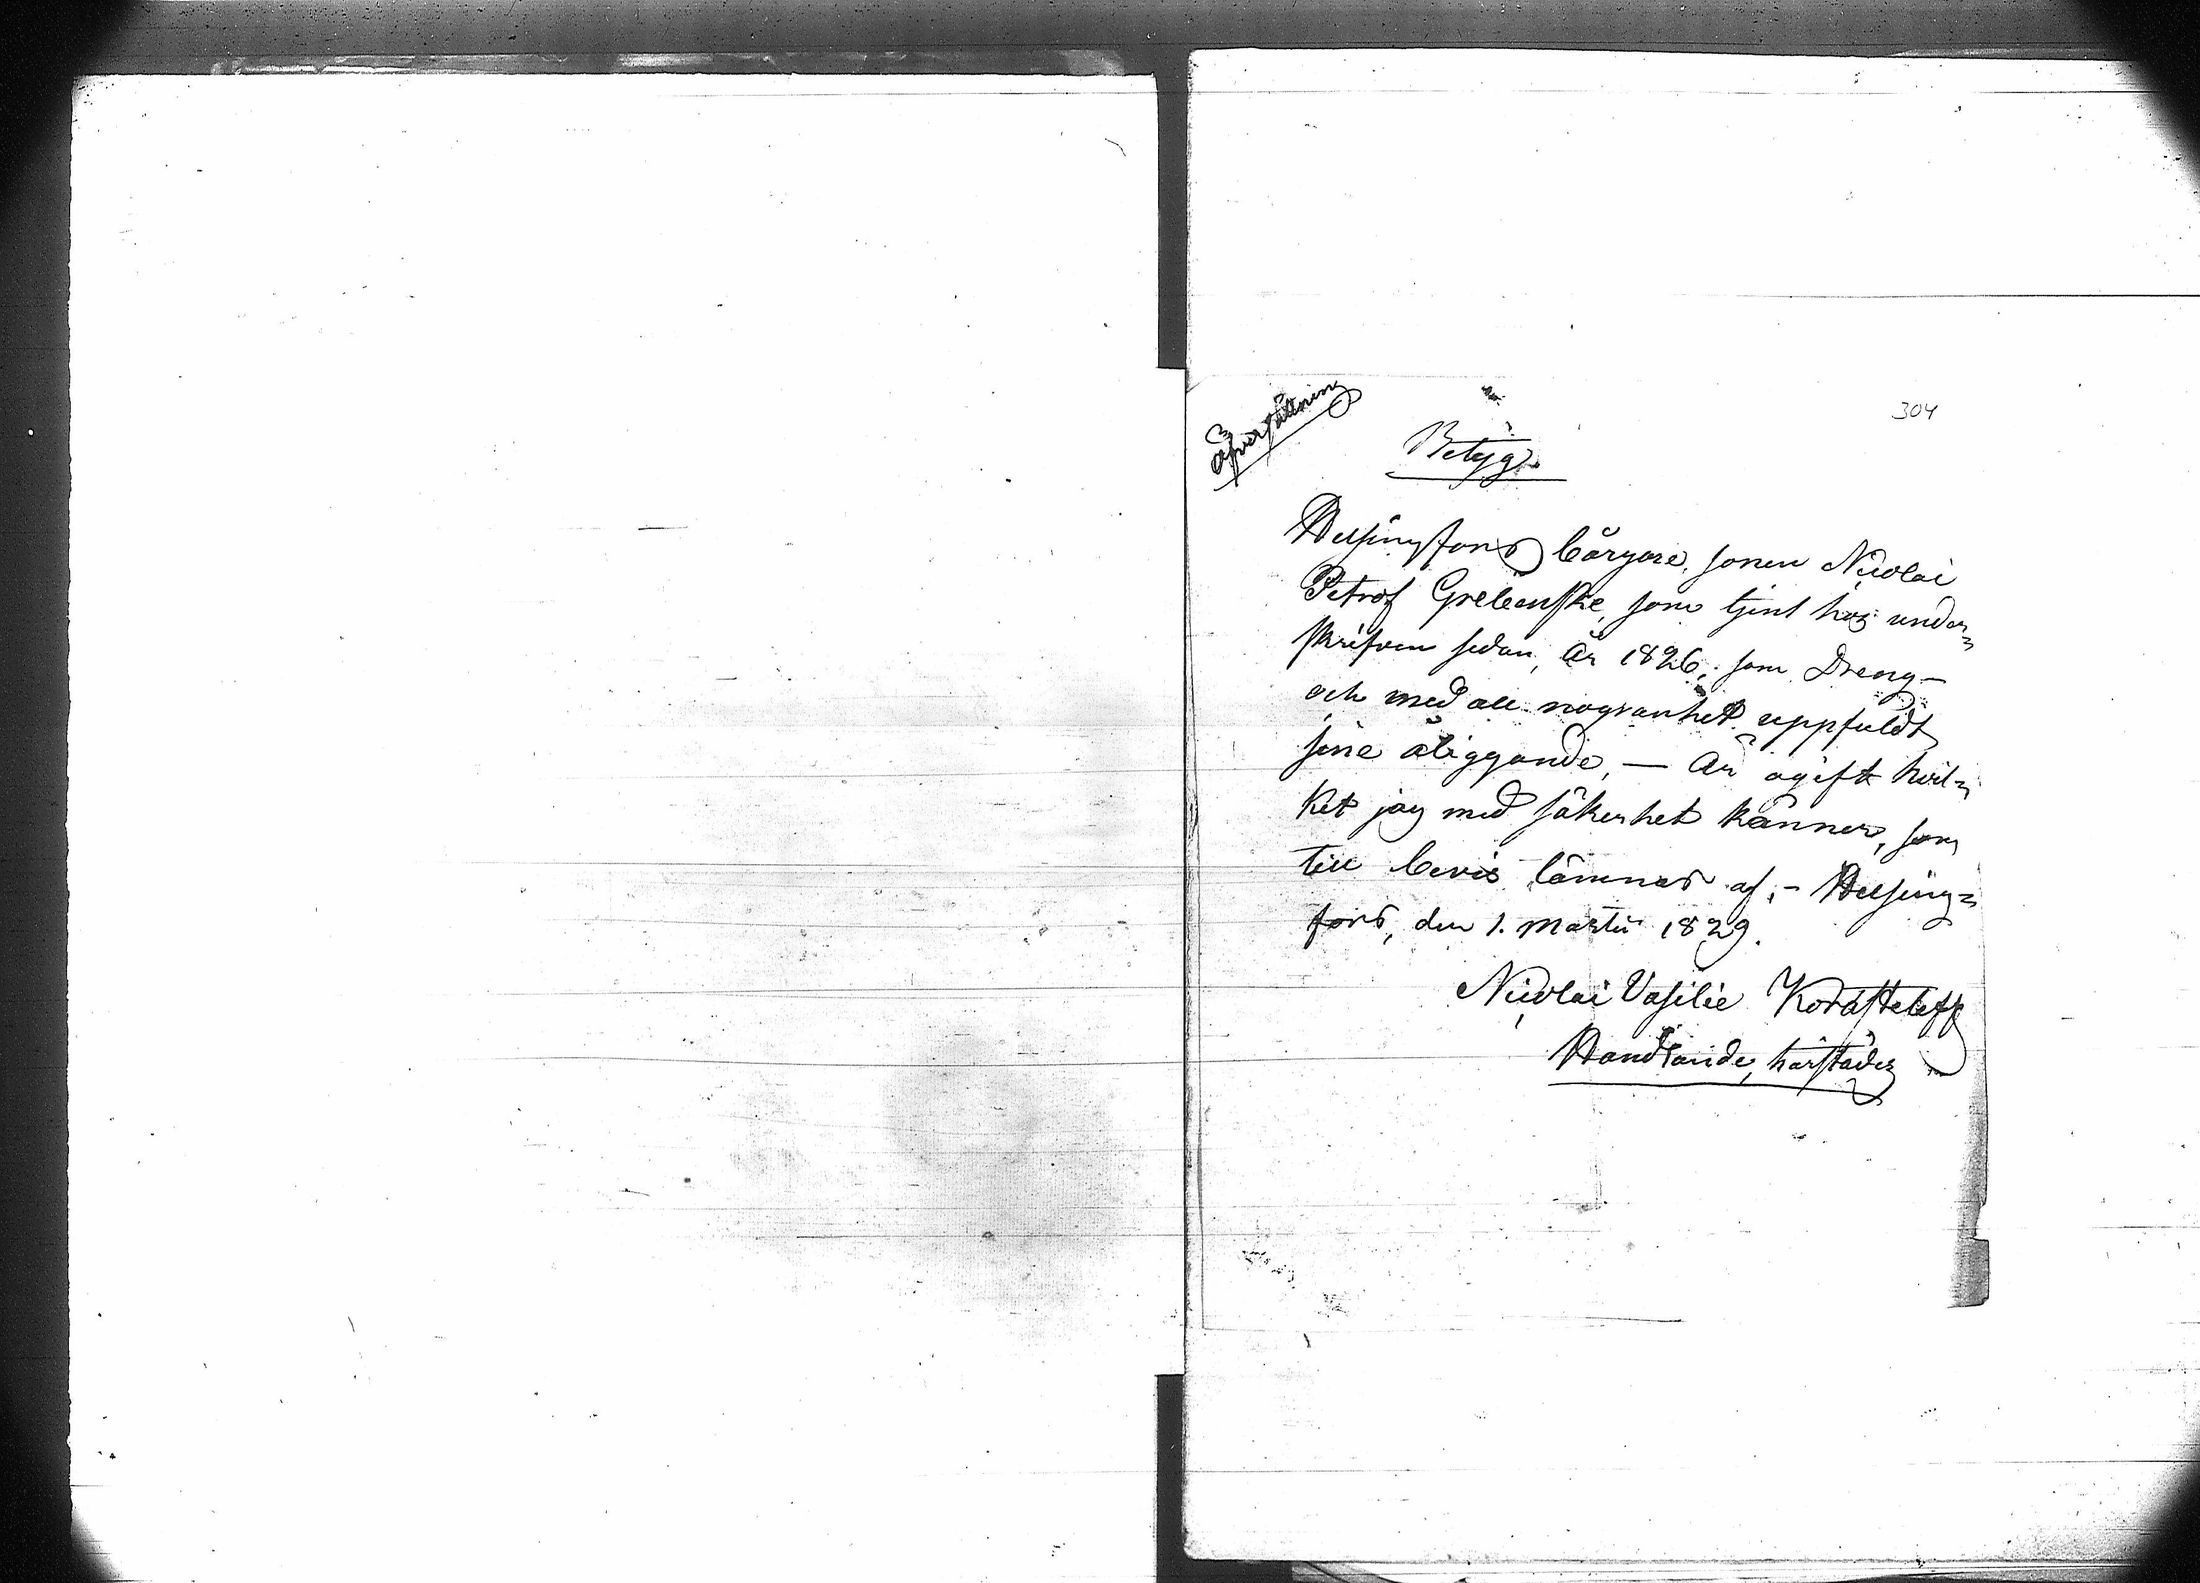 304
Åfversättning
Betyg.
Helsingfors bårgare, sonen Nicolai
Petrof Grebenske, som tjent hos under=
skrifven sedan, År 1826, som Dreng –
och med all nogranhet uppfuldt
sine åliggande, — Är ogift hvil=
ket jag med säkerhet känner, som
till bevis lämnas af, – Helsing=
fors, den 1. Martii 1829.
Nicolai Vasilie Korasteleff
Handlande, härstädes